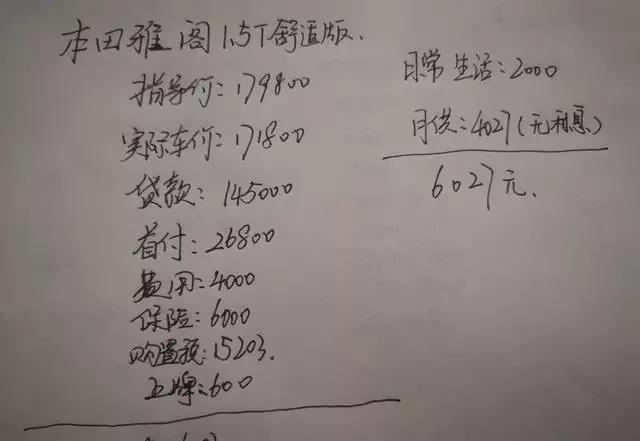 本田雅阁1.5T舒适版.
指导价:179800
实际车价:171800
贷款:145000
首付:26800
费用:4000
保险:6000
购置税:15203.
上牌:600
日常生活:2000
月供:4027(无利息)
6027元.